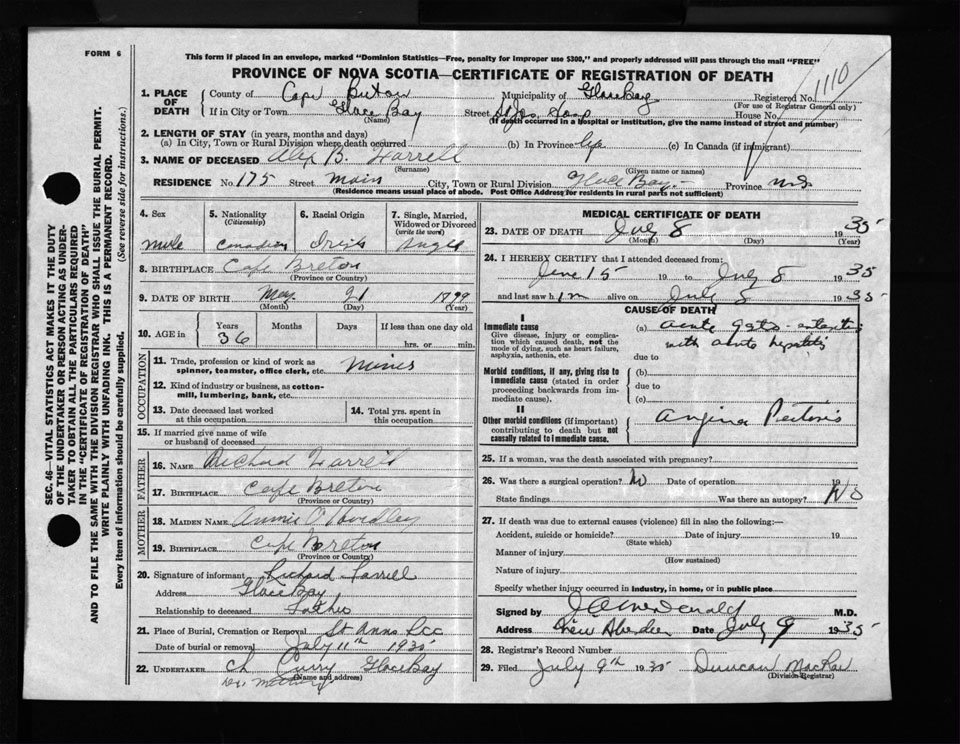 FORM 6
This form if placed in an envelope, marked "Dominion Statistics—Free, penalty for improper use $300," and properly addressed will pass through the mail "FREE"
PROVINCE OF NOVA SCOTIA—CERTIFICATE OF REGISTRATION OF DEATH
1110
1. PLACE OF DEATH
County of Cape Breton Municipality of Glace Bay Registered No.
(For use of Registrar General only)
If in City or Town Glace Bay Street St Jos. Hosp House No.
(Name) (If death occurred in a Hospital or institution, give the name instead of street and number)
2. LENGTH OF STAY (in years, months and days)
(a) In City, Town or Rural Division where death occurred (b) In Province life (c) In Canada (if immigrant)
3. NAME OF DECEASED Alex B. Farrell
(Surname) (Given name or names)
RESIDENCE No. 175 Street Main City, Town or Rural Division Glace Bay Province N.S
(Residence means usual place of abode. Post Office Address for residents in rural parts not sufficient)
4. Sex
male
5. Nationality
(Citizenship)
Canadian
6. Racial Origin
Irish
7. Single, Married, Widowed or Divorced
(write the word)
Single
8. BIRTHPLACE Cape Breton
(Province or Country)
9. DATE OF BIRTH May 21 1899
(Month) (Day) (Year)
10. AGE in Years Months Days If less than one day old
36 hrs. or min.
OCCUPATION
11. Trade, profession or kind of work as
spinner, teamster, office clerk, etc.
12. Kind of industry or business, as cotton-
mill, lumbering, bank, etc.
13. Date deceased last worked
at this occupation
14. Total yrs. spent in
this occupation
15. If married give name of wife
or husband of deceased
FATHER
16. NAME Richard Farrell
17. BIRTHPLACE Cape Breton
(Province or Country)
MOTHER
18. MAIDEN NAME Annie
19. BIRTHPLACE Cape Breton
(Province or Country)
20. Signature of informant Richard Farrell
Address Glace Bay
Relationship to deceased Father
21. Place of Burial, Cremation or Removal St Anns
Date of burial or removal July 11th 1935
22. UNDERTAKER Curry Glace Bay
(Name and address)
MEDICAL CERTIFICATE OF DEATH
23. DATE OF DEATH July 8 1935
(Month) (Day) (Year)
24. I HEREBY CERTIFY that I attended deceased from:
June 15 19 to July 8 1935
and last saw him alive on July 8 1935
CAUSE OF DEATH
I
Immediate cause
Give disease, injury or complica-
tion which caused death, not the
mode of dying, such as heart failure,
asphyxia, asthenia, etc.
(a) acute gastro-enteritis
with acute hepatitis
due to
Morbid conditions, if any, giving rise to
immediate cause (stated in order
proceeding backwards from im-
mediate cause).
(b)
due to
(c)
II
Other morbid conditions (if important)
contributing to death but not
causally related to immediate cause.
Angina Pectoris
25. If a woman, was the death associated with pregnancy?
26. Was there a surgical operation? No Date of operation 19
State findings Was there an autopsy? No
27. If death was due to external causes (violence) fill in also the following:—
Accident, suicide or homicide? Date of injury 19
(State which)
Manner of injury
(How sustained)
Nature of injury
Specify whether injury occurred in industry, in home, or in public place
Signed by M.D.
Address New Aberdeen Date July 9 1935
28. Registrar's Record Number
29. Filed July 9th 1935 Duncan MacRae
(Division Registrar)
SEC. 46—VITAL STATISTICS ACT MAKES IT THE DUTY
OF THE UNDERTAKER OR PERSON ACTING AS UNDER-
TAKER TO OBTAIN ALL THE PARTICULARS REQUIRED
IN THE "CERTIFICATE OF REGISTRATION OF DEATH"
AND TO FILE THE SAME WITH THE DIVISION REGISTRAR WHO SHALL ISSUE THE BURIAL PERMIT.
WRITE PLAINLY WITH UNFADING INK. THIS IS A PERMANENT RECORD.
Every item of information should be carefully supplied. (See reverse side for instructions.)